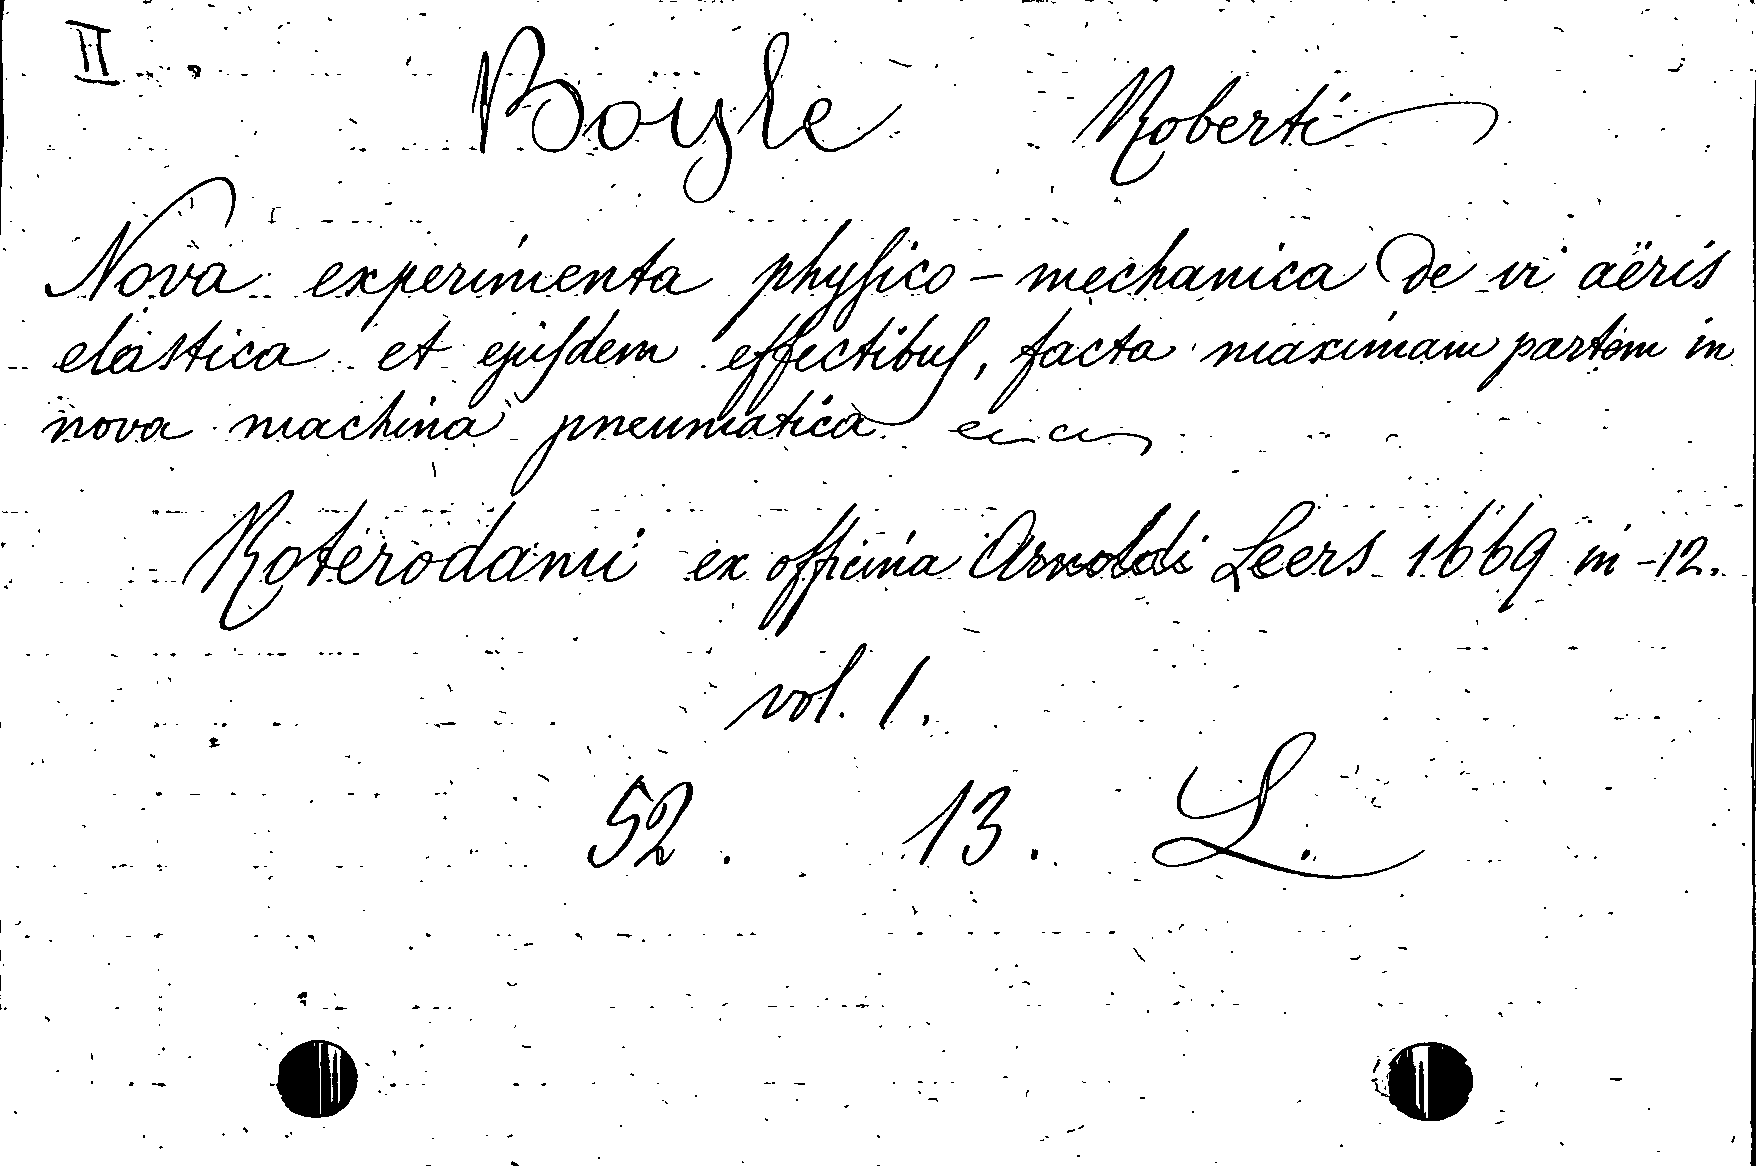 II
Boyle Roberti
Nova experimenta physico-mechanica de vi aëris
elastica et ejusdem effectibus, facta maximam partem in
nova machina pneumatica
Roterodami ex officina Arnoldi Leers 1669 in-12.
vol. 1.
52. 13. L.